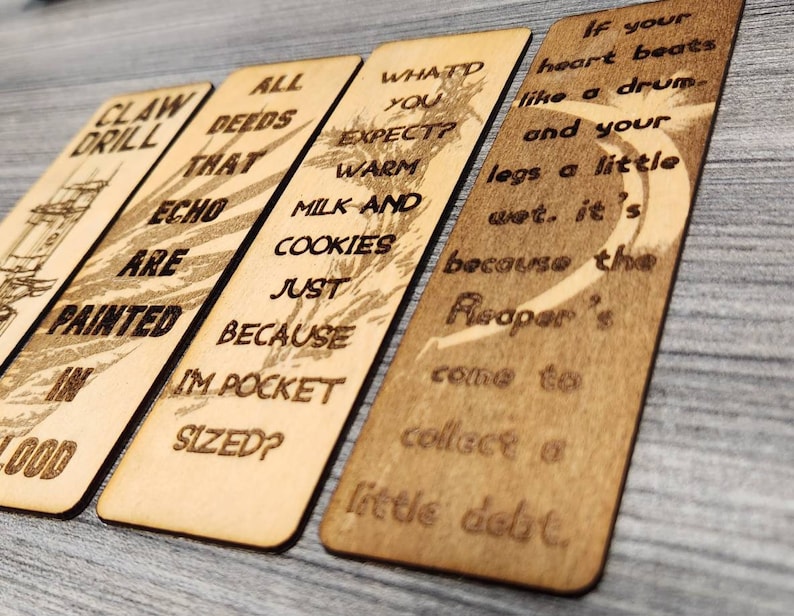 CLAW
DRILL
ALL
DEEDS
THAT
ECHO
ARE
PAINTED
IN
LOOD
WHAT'D
YOU
EXPECT?
WARM
MILK AND
COOKIES
JUST
BECAUSE
I'M POCKET
SIZED?
If your
heart beats
like a drum-
and your
legs a little
wet. it's
because the
Reaper's
come to
collect a
little debt.